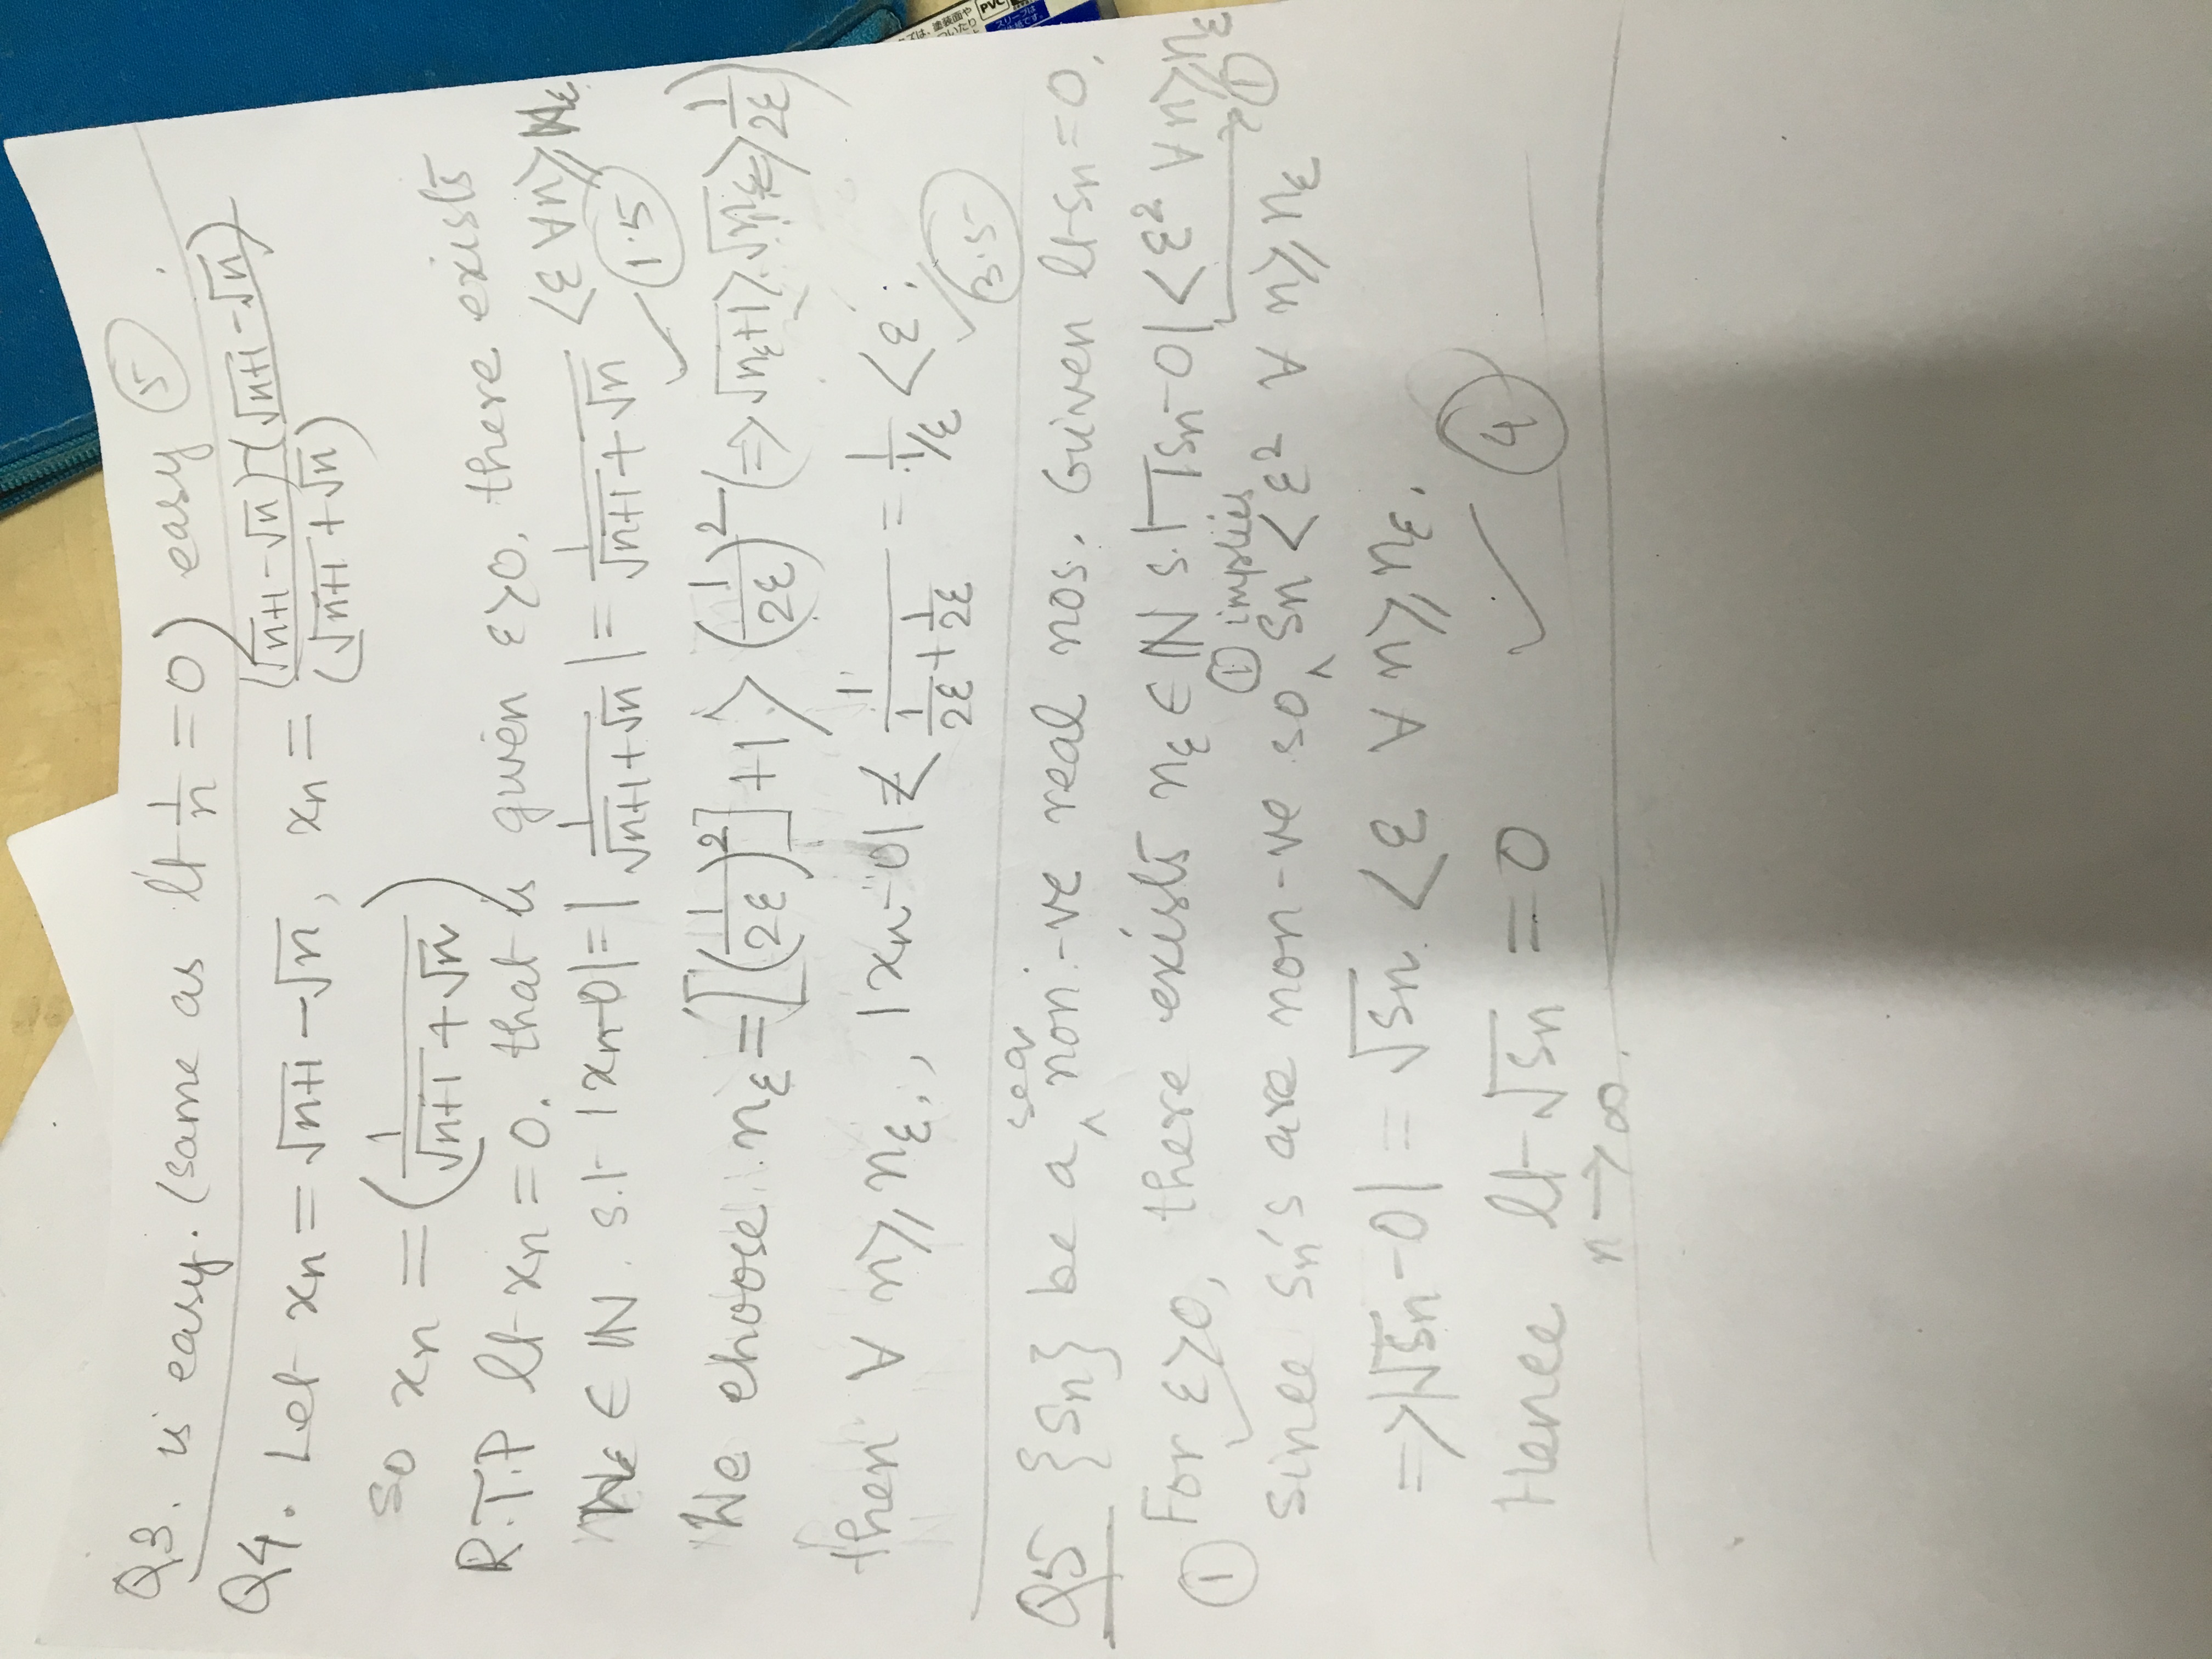 Q3. is easy. (same as lt 1/n = 0) easy (5) .
Q4. Let xn = √n+1 − √n, xn = (√n+1 − √n)(√n+1 − √n) / (√n+1 + √n)
so xn = (1 / √n+1 + √n)
R.T.P lt xn = 0. that is given ε>0, there exists
Nε ∈ ℕ s.t |xn−0| = |1 / √n+1 + √n| = 1 / √n+1 + √n < ε ∀ n ≥ Nε
✓ (1.5)
We choose nε = [(1/2ε)²] + 1 > (1/2ε)² (⇒ √nε+1 > √nε > 1/2ε)
then ∀ n ≥ nε., |xn − 0| < 1 / (1/2ε + 1/2ε) = 1 / 1/ε < ε.
✓ (3.5)
Q5 {Sn} be a seq non-ve real nos. Given lt sn = 0.
(1) For ε>0, there exists nε ∈ ℕ s.t |sn − 0| < ε² ∀ n ≥ nε → (1)
✓
since sn's are non-ve so, (1) implies sn < ε² ∀ n ≥ nε
⇒ |√sn − 0| = √sn < ε ∀ n ≥ nε.
Hence lt √sn = 0 ✓ (4)
n → ∞.